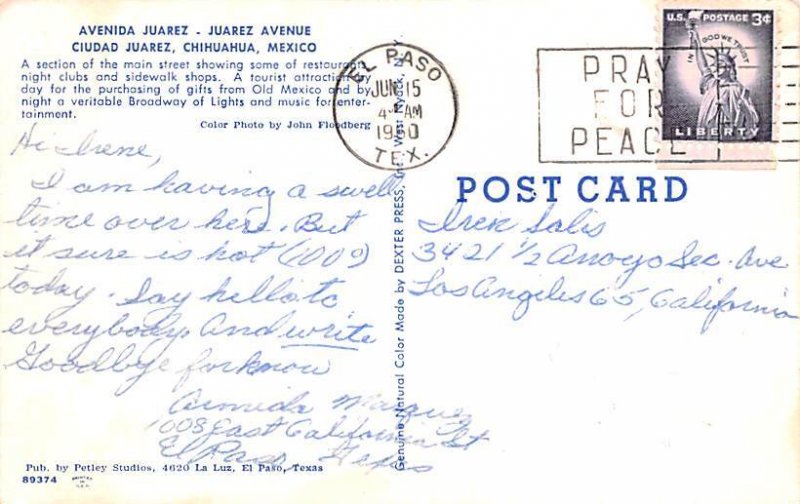 AVENIDA JUAREZ - JUAREZ AVENUE
CIUDAD JUAREZ, CHIHUAHUA, MEXICO
A section of the main street showing some of restaurants
night clubs and sidewalk shops. A tourist attraction by
day for the purchasing of gifts from Old Mexico and by
night a veritable Broadway of Lights and music for enter-
tainment.
Color Photo by John Floodberg
Hi Irene,
I am having a swell
time over here. But
it sure is hot (100°)
today. Say hello to
everybody. And write
Goodbye for know
Armida Marquez
1008 East California St
El Paso, Texas
Pub. by Petley Studios, 4620 La Luz, El Paso, Texas
89374
PRINTED
IN
U.S.A.
Genuine Natural Color Made by DEXTER PRESS, Inc. West Nyack, N.Y.
EL PASO
JUN 15
4 AM
1960
TEX.
PRAY
FOR
PEACE
U.S. POSTAGE 3¢
IN GOD WE TRUST
LIBERTY
POST CARD
Iren Salis
3421 1/2 Arroyo Sec. Ave
Los Angeles 65, California